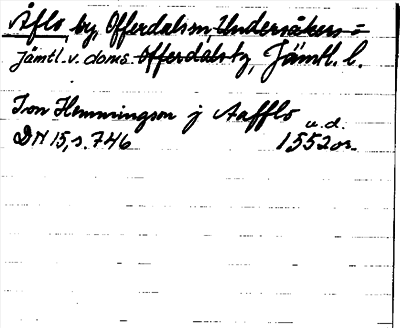 Åflo by, Offerdals sn, Undersåkers o
Jämtl. v. doms. Offerdals tg, Jämtl. l.
Ion Hemmingson j Aafflo
u.d.
DN 15, s. 746 1552 or.